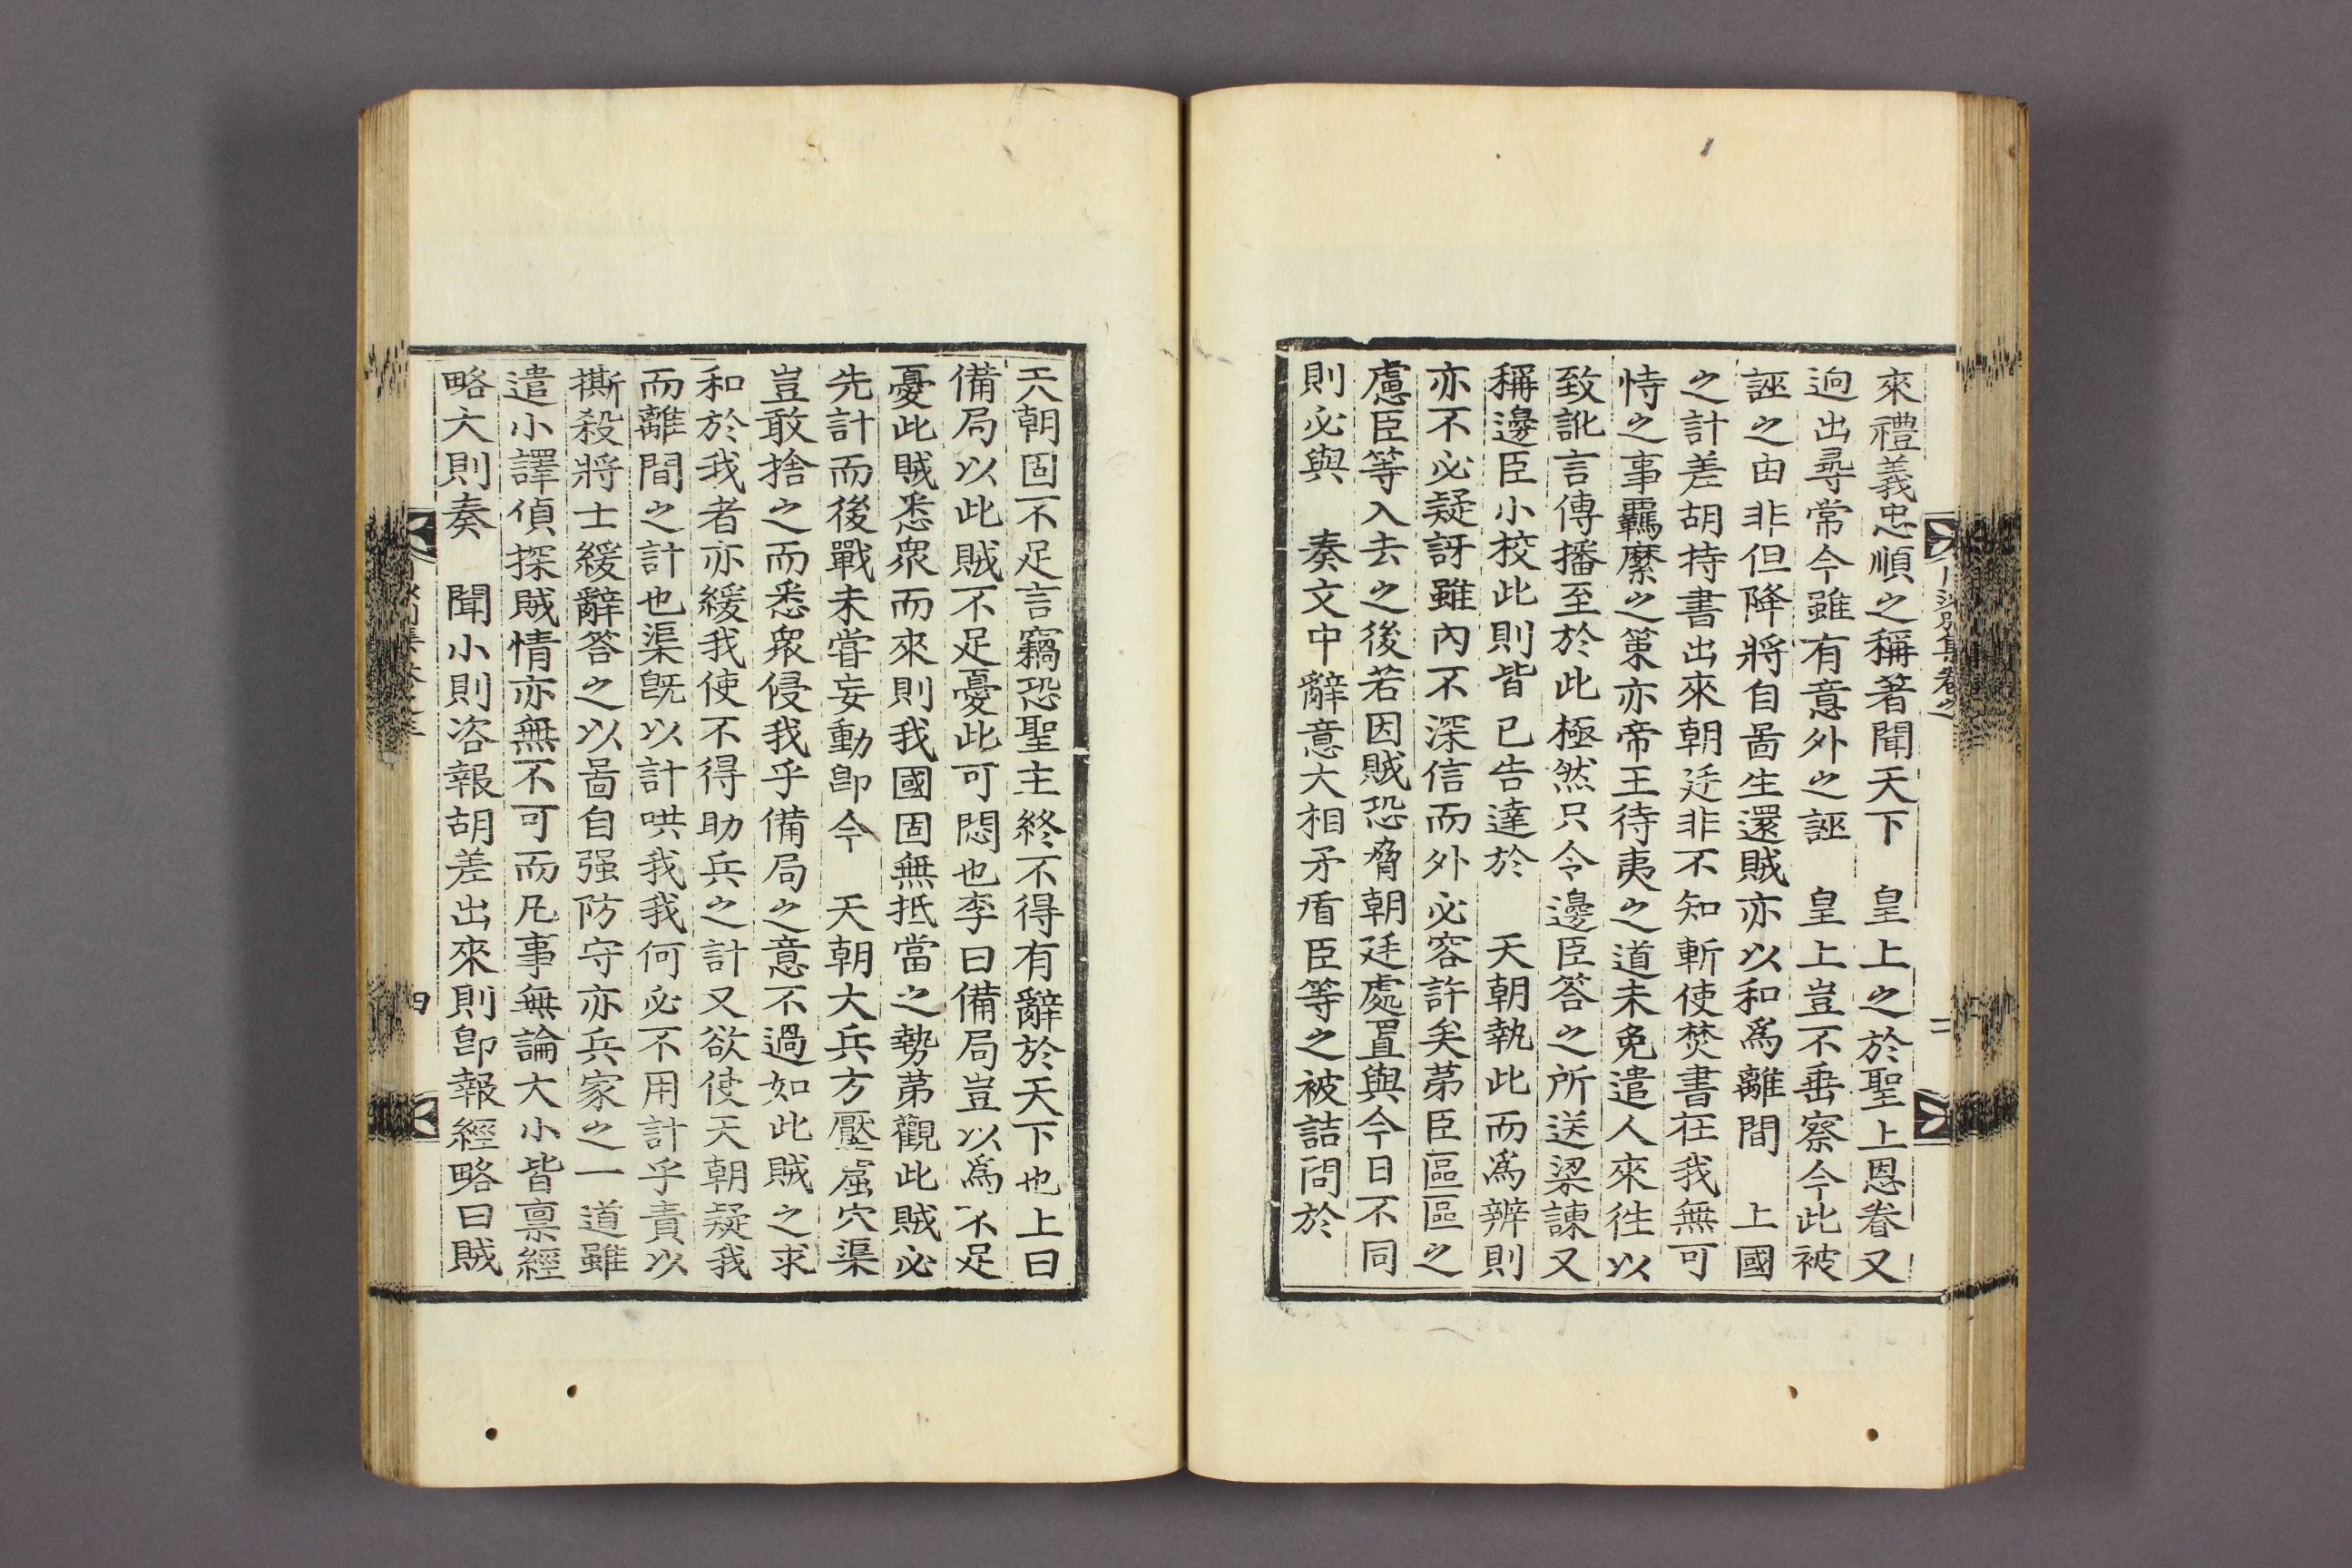 來禮義忠順之稱著聞天下　皇上之於聖上恩眷又
逈出尋常今雖有意外之誣　皇上豈不垂察今此被
誣之由非但降將自啚生還賊亦以和爲離間　上國
之計差胡持書出來朝廷非不知斬使焚書在我無可
恃之事羈縻之策亦帝王待夷之道未免遣人來徃以
致訛言傳播至於此極然只令邊臣答之所送梁諫又
稱邊臣小校此則皆已告達於　天朝執此而爲辨則
亦不必疑訝雖內不深信而外必容許矣苐臣區區之
慮臣等入去之後若因賊恐脅朝廷處置與今日不同
則必與　奏文中辭意大相矛盾臣等之被詰問於
天朝固不足言竊恐聖主終不得有辭於天下也上曰
備局以此賊不足憂此可悶也李曰備局豈以爲不足
憂此賊悉衆而來則我國固無抵當之勢苐觀此賊必
先計而後戰未甞妄動卽今　天朝大兵方壓窟穴渠
豈敢捨之而悉衆侵我乎備局之意不過如此賊之求
和於我者亦緩我使不得助兵之計又欲使天朝疑我
而離間之計也渠旣以計哄我我何必不用計乎責以
撕殺將士緩辭答之以啚自强防守亦兵家之一道雖
遣小譯偵探賊情亦無不可而凡事無論大小皆禀經
略大則奏　聞小則咨報胡差出來則卽報經略曰賊
四